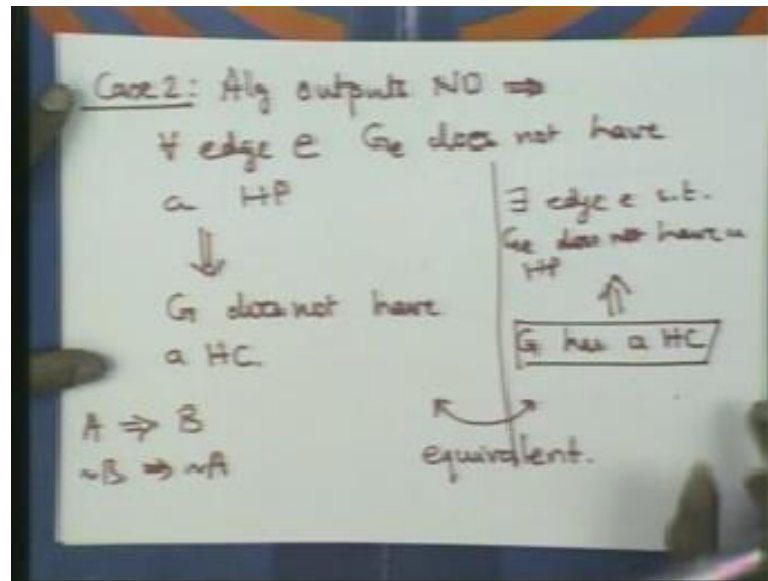 Case 2: Alg outputs NO ⇒
∀ edge e Ge does not have
a HP
⇓
G does not have
a HC.
A ⇒ B
~B ⇒ ~A
∃ edge e s.t.
Ge does not have a
HP
⇑
G has a HC
equivalent.